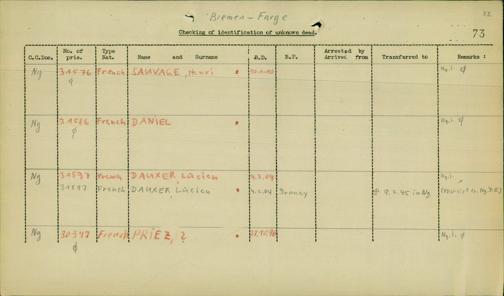 Bremen-Farge
Checking of identification of unknown dead.
73
C.C.Doc. No. of pris. Type Nat. Name and Surname B.D. B.P. Arrested by Arrived from Transferred to Remarks:
Ng 31576 French SAUVAGE, Henri Ng.l. ø
ø
Ng 31586 French DANIEL Ng.l. ø
ø
Ng 31597 French DAUXER Lucien 4.2.04 Ng.l.
31597 French DAUXER, Lucien 4.2.04 9.2.45 in Ng
Ng 30347 French PRIEZ, ? Ng.l. ø
ø